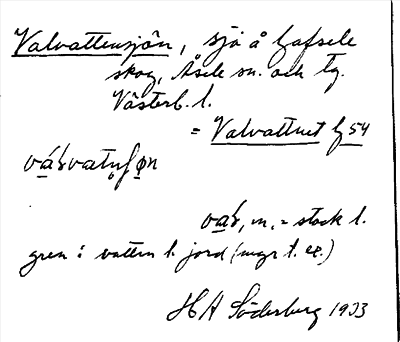 Valvattensjön, sjö å Gafsele
skog, Åsele sn. och tg.
Västerb. l.
= Valvattnet
vat
, m, = stock l.
gren i vatten l. jord (mgr t. ex.)
H A Söderberg 1933